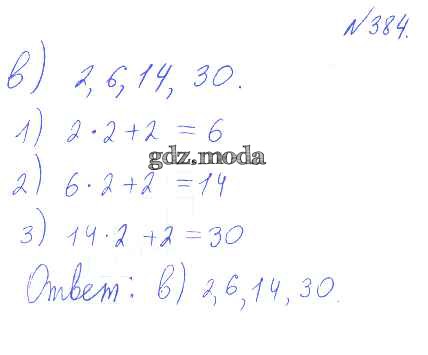 №384.
в) 2, 6, 14, 30.
1) 2·2+2 = 6
gdz.moda
2) 6·2+2 = 14
3) 14·2 +2 = 30
Ответ: в) 2, 6, 14, 30.